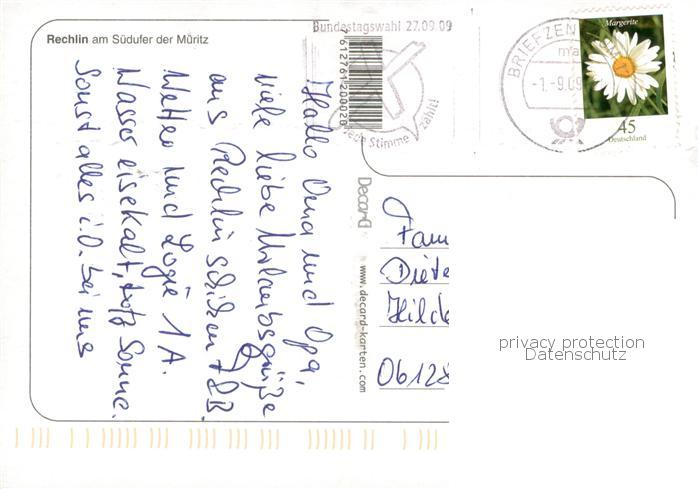 Rechlin am Südufer der Müritz
Hallo Oma und Opa,
viele liebe Urlaubsgrüße
aus Rechlin schicken
Wetter und Logie 1A.
Wasser eisekalt, trotz Sonne.
Sonst alles i.O. bei uns
Bundestagswahl 27.09.09
Jede Stimme zählt!
7612761200020
BRIEFZEN
-1.-9.09
Margerite
45
Deutschland
Decard
www.decard-karten.com
Fam
Diete
Hilde
06128
privacy protection
Datenschutz